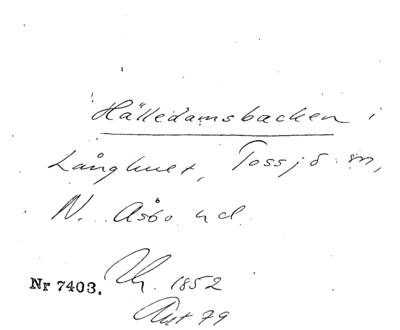 Hälledamsbacken i
Långhult, Tossjö sn,
N. Åsbo hd.
Nr 7403. 1852
79